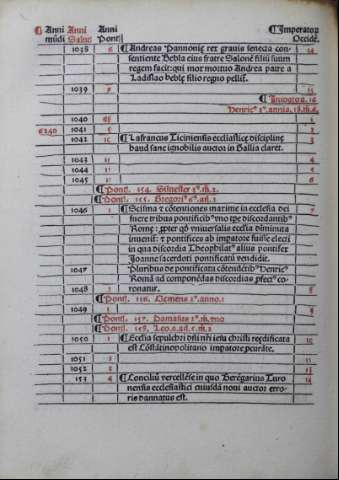 Anni Anni Anni Imperator
mūdi Salut Pont Occidē.
1038 6 Andreas Pannonię rex grauis senecta con- 14
sentiente Bebla eius fratre Salonē filiū suum
regem facit: qui mor mortuo Andrea patre a
Ladislao beblę filio regno pellit.
1039 15
Imperator. 16
Henric⁹ 2⁹. annis. 18. m. 6.
1040
6240 1041 2
1042 Lafrancus Ticiniensis ecclesiasticę disciplinę 3
haud sane ignobilis auctor in Gallia claret.
1043 11 4
1044 5
1045 6
Pont. 154. Siluester 3⁹. m. 2.
Pont. 155. Gregori⁹ 6⁹. añ. 2
1046 1 Scisma et cōtentiones maxime in ecclesia dei 7
fuere tribus pontificib⁹ vno tpe discordantib⁹
Rome: ppter qđ vniuersalis ecclesia diminuta
innenit: et pontifices ab impatore fuisse electi
in qua discordia Theophilat⁹ alius pontifex
Joanne sacerdoti pontificatū vendidit.
1047 Pluribus de pontificatu cōtendētib⁹ Henric⁹
Romā ad componēdas discordias pfect⁹ co-
1048 1 ronatur.
Pont. 156. Clemens 2⁹. anno. 1
1049
Pont. 157. Damasus 2⁹. m. vno
Pont. 158. Leo. 9. añ. 5. m. 2
1050 1 Ecclia sepulchri dñi nri iesu christi reedificata 10
est Cōstātinopolitano impatore pcurāte.
1051 11
1052
153 4 Conciliū vercellēse in quo Berēgarius Turo
nensis ecclesiastici cuiusdā noui auctor erro-
ris damnatus est.